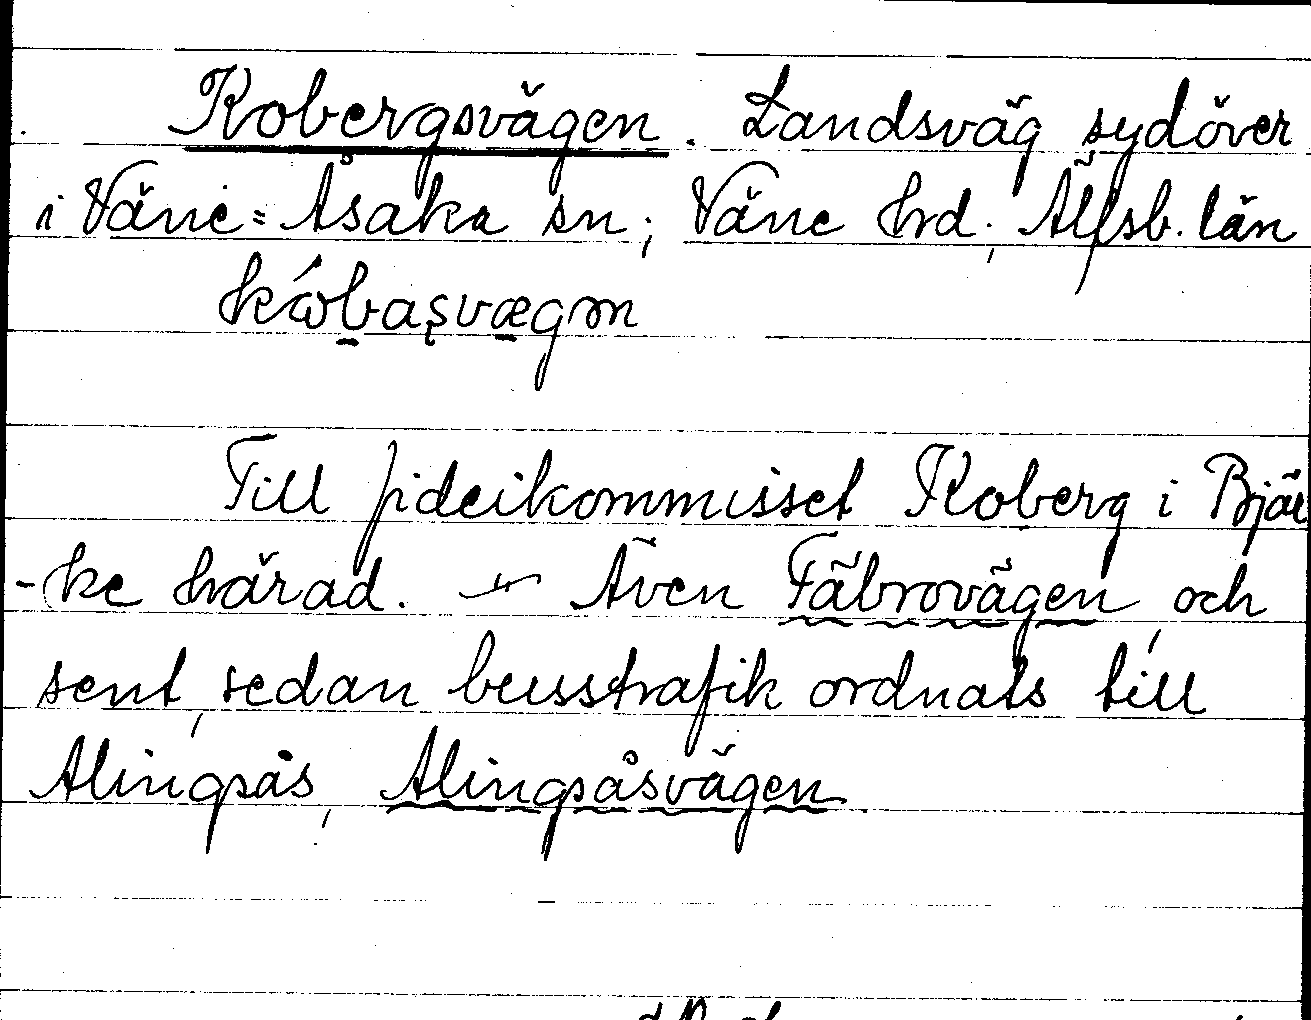 Kobergsvägen. Landsväg sydöver
i Väne-Åsaka sn; Väne hrd; Älfsb. län
Till fideikommisset Koberg i Bjär
-ke härad. — Även Fäbrovägen och
sent, sedan busstrafik ordnats till
Alingsås, Alingsåsvägen